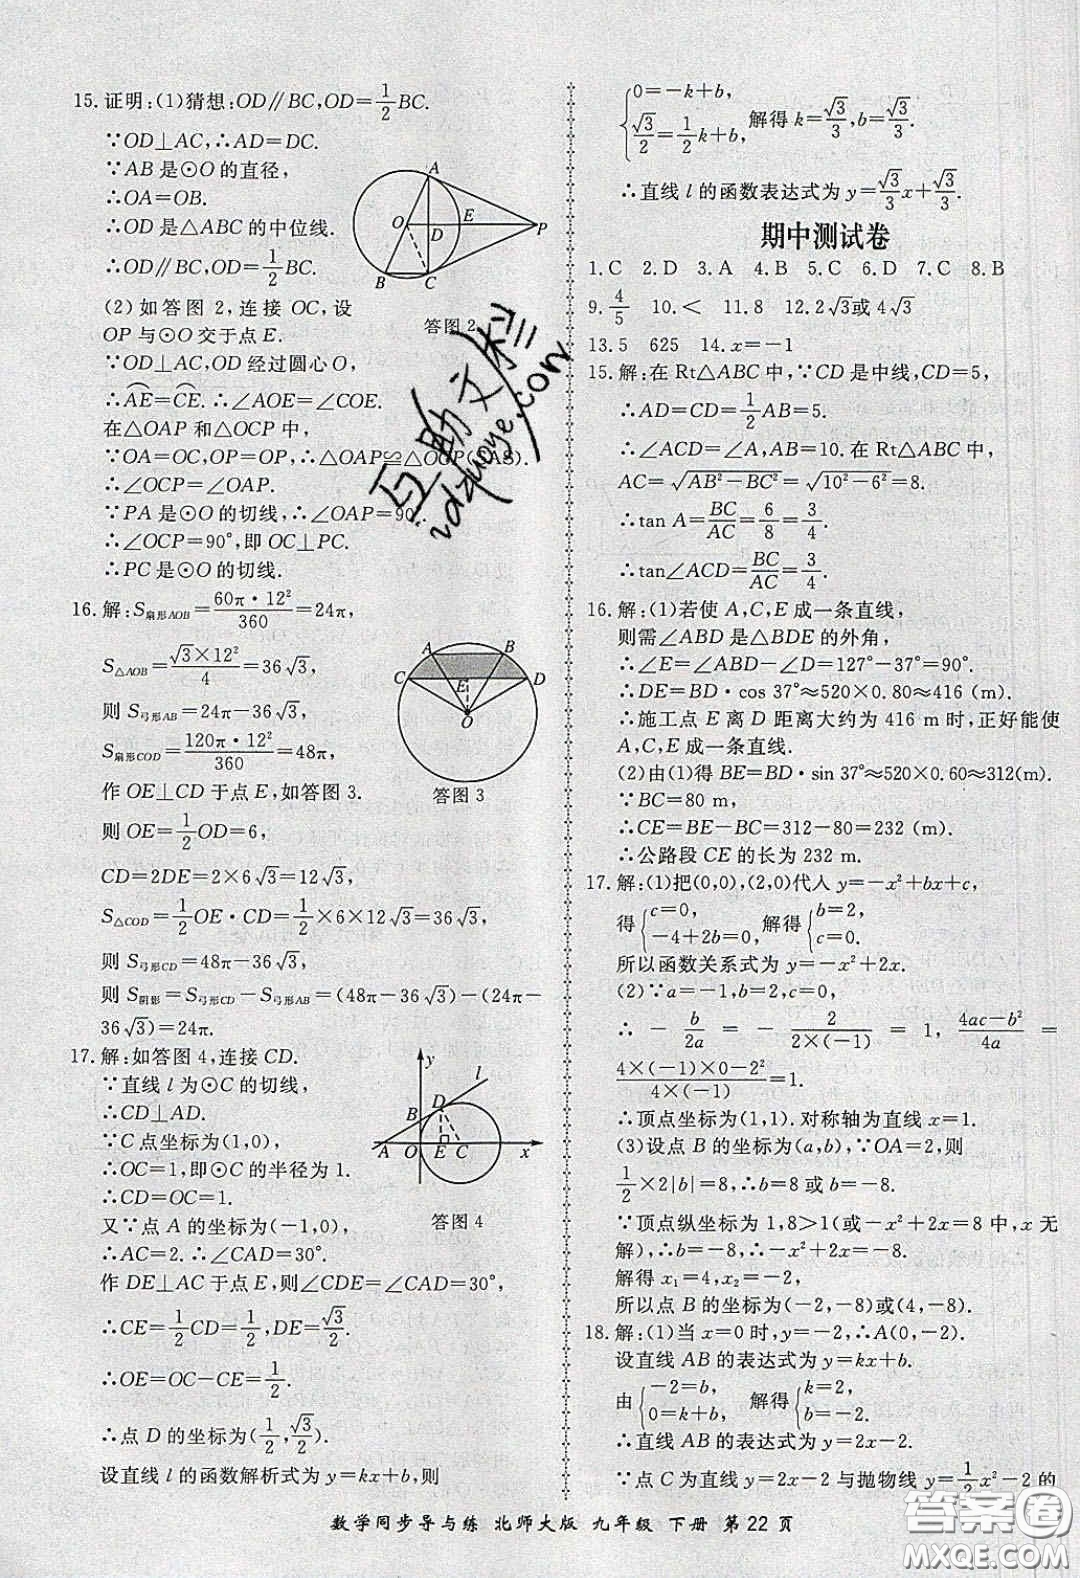 15.证明:(1)猜想:OD∥BC,OD=1/2BC.
∵OD⊥AC,∴AD=DC.
∵AB是⊙O的直径,
∴OA=OB.
∴OD是△ABC的中位线.
∴OD∥BC,OD=1/2BC.
(2)如答图2,连接OC,设
OP与⊙O交于点E.
∵OD⊥AC,OD经过圆心O,
∴AE=CE.∴∠AOE=∠COE.
在△OAP和△OCP中,
∵OA=OC,OP=OP,∴△OAP≌△OCP(SAS).
∴∠OCP=∠OAP.
∵PA是⊙O的切线,∴∠OAP=90°.
∴∠OCP=90°,即OC⊥PC.
∴PC是⊙O的切线.
A
O
E
D
P
B
C
答图2
16.解:S扇形AOB=60π·12²/360=24π,
S△AOB=√3×12²/4=36√3,
则S弓形AB=24π-36√3,
S扇形COD=120π·12²/360=48π,
作OE⊥CD于点E,如答图3.
则OE=1/2OD=6,
CD=2DE=2×6√3=12√3,
S△COD=1/2OE·CD=1/2×6×12√3=36√3,
则S弓形CD=48π-36√3,
则S阴影=S弓形CD-S弓形AB=(48π-36√3)-(24π-
36√3)=24π.
A
B
C
E
D
O
答图3
17.解:如答图4,连接CD.
∵直线l为⊙C的切线,
∴CD⊥AD.
∵C点坐标为(1,0),
∴OC=1,即⊙C的半径为1.
∴CD=OC=1.
又∵点A的坐标为(-1,0),
∴AC=2.∴∠CAD=30°.
作DE⊥AC于点E,则∠CDE=∠CAD=30°,
∴CE=1/2CD=1/2,DE=√3/2.
∴OE=OC-CE=1/2.
∴点D的坐标为(1/2,√3/2).
设直线l的函数解析式为y=kx+b,则
y
l
D
B
A
O
E
C
x
答图4
{0=-k+b,
√3/2=1/2k+b, 解得k=√3/3,b=√3/3.
∴直线l的函数表达式为y=√3/3x+√3/3.
期中测试卷
1.C 2.D 3.A 4.B 5.C 6.D 7.C 8.B
9.4/5 10.< 11.8 12.2√3或4√3
13.5 625 14.x=-1
15.解:在Rt△ABC中,∵CD是中线,CD=5,
∴AD=CD=1/2AB=5.
∴∠ACD=∠A,AB=10.在Rt△ABC中,
AC=√AB²-BC²=√10²-6²=8.
∴tan A=BC/AC=6/8=3/4.
∴tan∠ACD=BC/AC=3/4.
16.解:(1)若使A,C,E成一条直线,
则需∠ABD是△BDE的外角,
∴∠E=∠ABD-∠D=127°-37°=90°.
∴DE=BD·cos 37°≈520×0.80≈416(m).
∴施工点E离D距离大约为416 m时,正好能使
A,C,E成一条直线.
(2)由(1)得BE=BD·sin 37°≈520×0.60≈312(m).
∵BC=80 m,
∴CE=BE-BC=312-80=232(m).
∴公路段CE的长为232 m.
17.解:(1)把(0,0),(2,0)代人y=-x²+bx+c,
得{c=0, -4+2b=0, 解得{b=2, c=0.
所以函数关系式为y=-x²+2x.
(2)∵a=-1,b=2,c=0,
∴-b/2a=-2/2×(-1)=1,4ac-b²/4a=
4×(-1)×0-2²/4×(-1)=1.
∴顶点坐标为(1,1).对称轴为直线x=1.
(3)设点B的坐标为(a,b),∵OA=2,则
1/2×2|b|=8,∴b=8或b=-8.
∵顶点纵坐标为1,8>1(或-x²+2x=8中,x无
解),∴b=-8.∴-x²+2x=-8.
解得x₁=4,x₂=-2.
所以点B的坐标为(-2,-8)或(4,-8).
18.解:(1)当x=0时,y=-2,∴A(0,-2).
设直线AB的表达式为y=kx+b.
由{-2=b, 0=k+b, 解得{k=2, b=-2.
∴直线AB的表达式为y=2x-2.
∵点C为直线y=2x-2与抛物线y=1/2x²-2的
数学同步导与练 北师大版 九年级 下册 第22页
互助文栏
idzuoye.com
答案圈
MXQE.COM